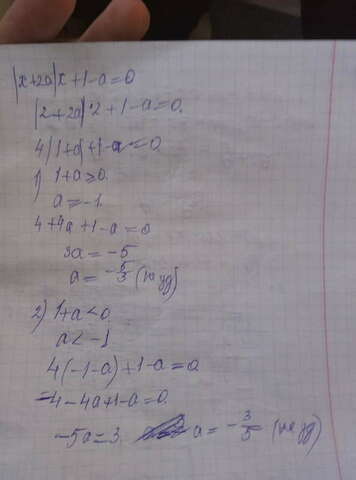 |x+2a|x+1-a=0
|2+2a|·2+1-a=0.
4|1+a|+1-a=0
1) 1+a≥0.
a≥-1.
4+4a+1-a=0
3a=-5
a=-5/3 (не уд)
2) 1+a<0
a<-1
4(-1-a)+1-a=0
-4-4a+1-a=0.
-5a=3 a=-3/5 (не уд)